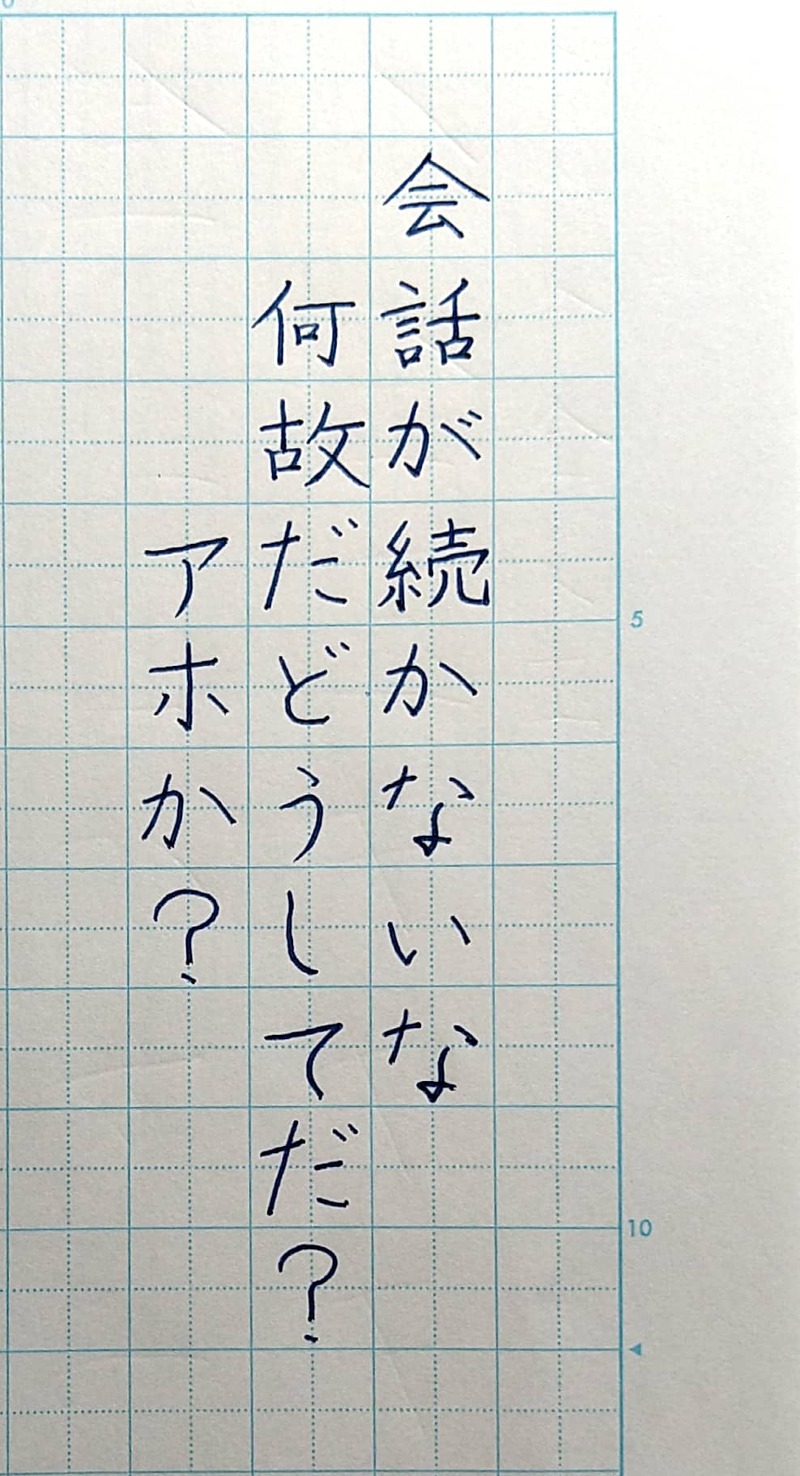 会話が続かないな
何故だどうしてだ?
アホか?
5
10